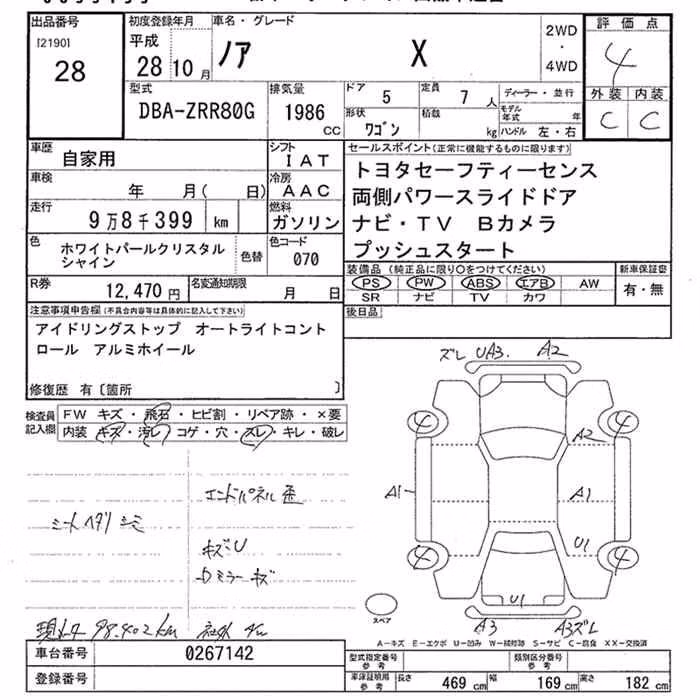 出品番号 初度登録年月 車名・グレード 2WD ・ 4WD 評価点
[2190]
28
平成 28 年 10 月
ノア X
4
外装 内装
C C
型式 DBA-ZRR80G
排気量 1986 CC
ドア 5 定員 7 人
形状 ワゴン 積載 kg
ディーラー・並行
モデル年式 年
ハンドル 左・右
車歴 自家用
シフト IAT
車検 年 月( 日)
冷房 AAC
走行 9万8千399 km
燃料 ガソリン
色 ホワイトパールクリスタルシャイン 色替
色コード 070
R券 12,470 円
名変通知期限 月 日
セールスポイント(正常に機能するものに限ります)
トヨタセーフティーセンス
両側パワースライドドア
ナビ・TV Bカメラ
プッシュスタート
装備品 (純正品に限り○をつけてください) 新車保証書
PS PW ABS エアB AW 有・無
SR ナビ TV カワ
後日品
注意事項申告欄(不具合内容等は具体的に記入して下さい)
アイドリングストップ オートライトコント
ロール アルミホイール
修復歴 有〔箇所 〕
検査員記入欄
FW キズ・飛石・ヒビ割・リペア跡・×要
内装 キズ・汚レ・コゲ・穴・スレ・キレ・破レ
エンドパネル歪
シートヘタリ シミ
キズU
ドミラーキズ
98.402km 社外
ズレ UA3. A2
4 4
A2
A1 A1
U1
4 4
U1
A3 A3ズレ
スペア
A-キズ E-エクボ U-凹み W-補修跡 S-サビ C-腐食 XX-交換済
車台番号 0267142
登録番号
型式指定番号 参考 類別区分番号 参考
車検証明用 参考 長さ 469 cm 幅 169 cm 高さ 182 cm